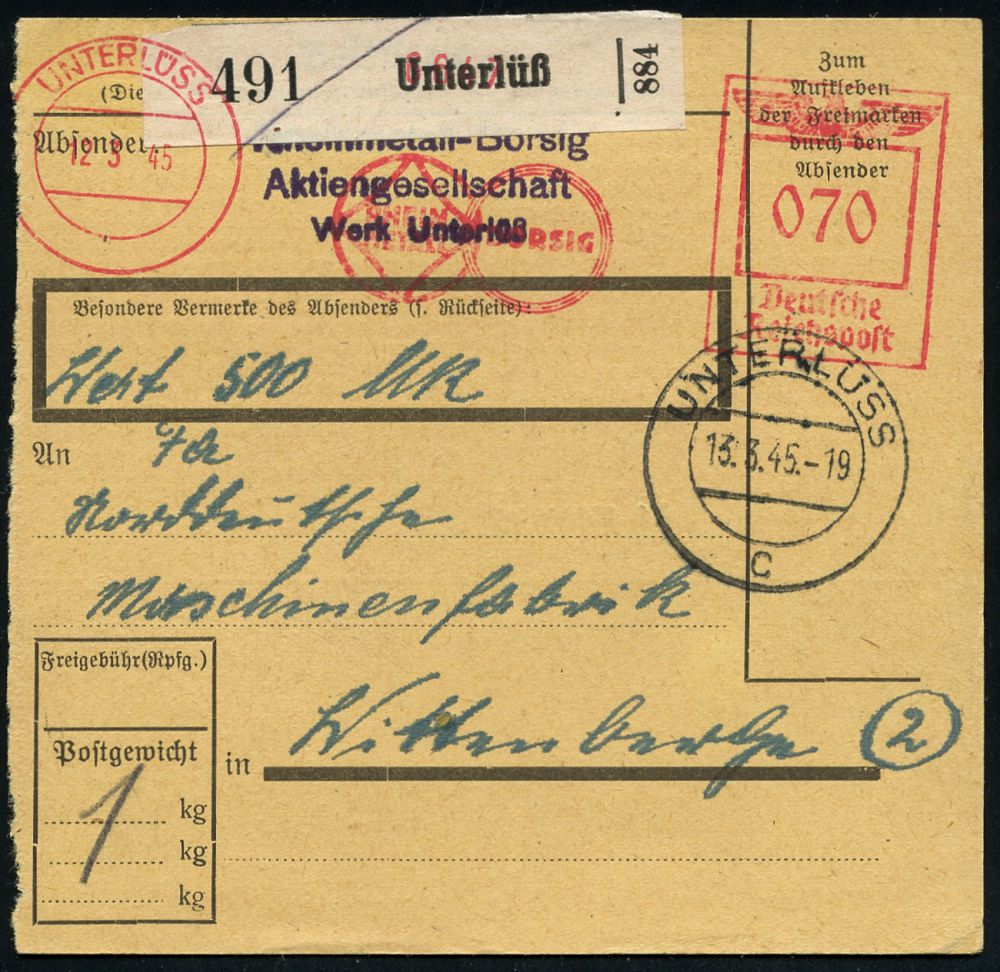 UNTERLÜSS
12 3 45
(Die
Absender
491
Unterlüß
884
Rheinmetall-Borsig
Aktiengesellschaft
Werk Unterlüß
RHEIN
METALL
BORSIG
Zum
Aufkleben
der Freimarken
durch den
Absender
070
Deutsche
Reichspost
Besondere Vermerke des Absenders (s. Rückseite):
Wert 500 MK
UNTERLÜSS
13.3.45.-19
c
An Fa
Norddeutsche
Maschinenfabrik
Freigebühr(Rpfg.)
Postgewicht
1 kg
kg
kg
in Wittenberge 2